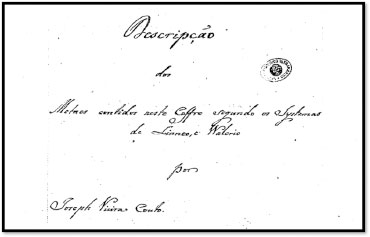 Descripção
dos
Metaes contidos neste Coffre segundo os Systemas
de Linneo, e Walerio
por
Joseph Vieira Couto.